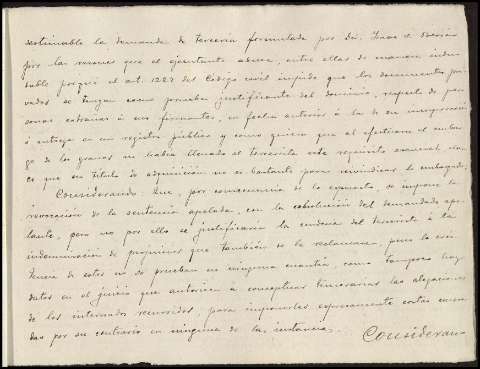 destimable la demanda de tercería formulada por Dn. Juan
por las razones que el ejecutante aduce, entre ellas de manera indu-
dable porque el art. 1227 del Código civil impide que los documentos pri-
vados se tengan como prueba justificante del dominio, respecto de per-
sonas extrañas á sus firmantes, en fecha anterior á la de su incorporació
ó entrega en un registro público y como quiera que al efectuarse el embar-
go de los granos no había llenado el tercerista este requisito esencial, claro
es que su título de adquisición no es bastante para reivindicar lo embargado.
Considerando: Que, por consecuencia de lo expuesto, se impone la
revocación de la sentencia apelada, con la absolución del demandado ape-
lante, pero no por ello se justificaría la condena del tercerista á la
indemnización de perjuicios que también se le reclaman, pues la exis-
tencia de estos no se prueban en ninguna cuantía, como tampoco hay
datos en el juicio que autoricen a conceptuar temerarias las alegaciones
de los interesados recurridos, para imponerles expresamente costas causa-
das por su contrario en ninguna de las instancias.
Consideran-